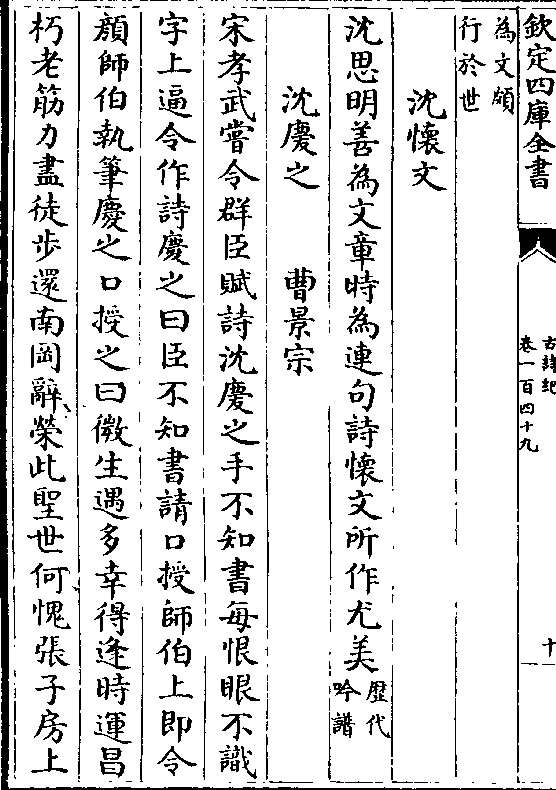 欽定四庫全書
古詩紀
卷一百四十九
十
為文頗
行於世
沈懷文
沈思明善為文章時為連句詩懷文所作尤美歴代
吟譜
沈慶之　　曹景宗
宋孝武嘗令群臣賦詩沈慶之手不知書每恨眼不識
字上逼令作詩慶之曰臣不知書請口授師伯上即令
顔師伯執筆慶之口授之曰微生遇多幸得逢時運昌
朽老筋力盡徒步還南岡辭榮此聖世何愧張子房上